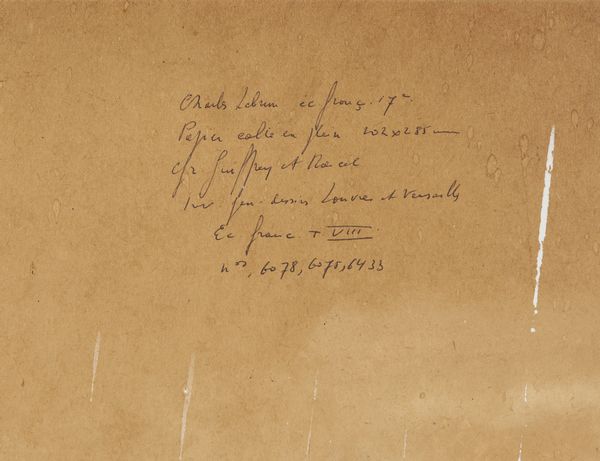 Charles Lebrun éc franç. 17e
Papier collé en plein 202x288 mm
Cf. Guiffrey et Marcel
Inv. gen. dessins Louvre et Versailles
Ec franc T. VIII.
nos, 6078, 6075, 6433